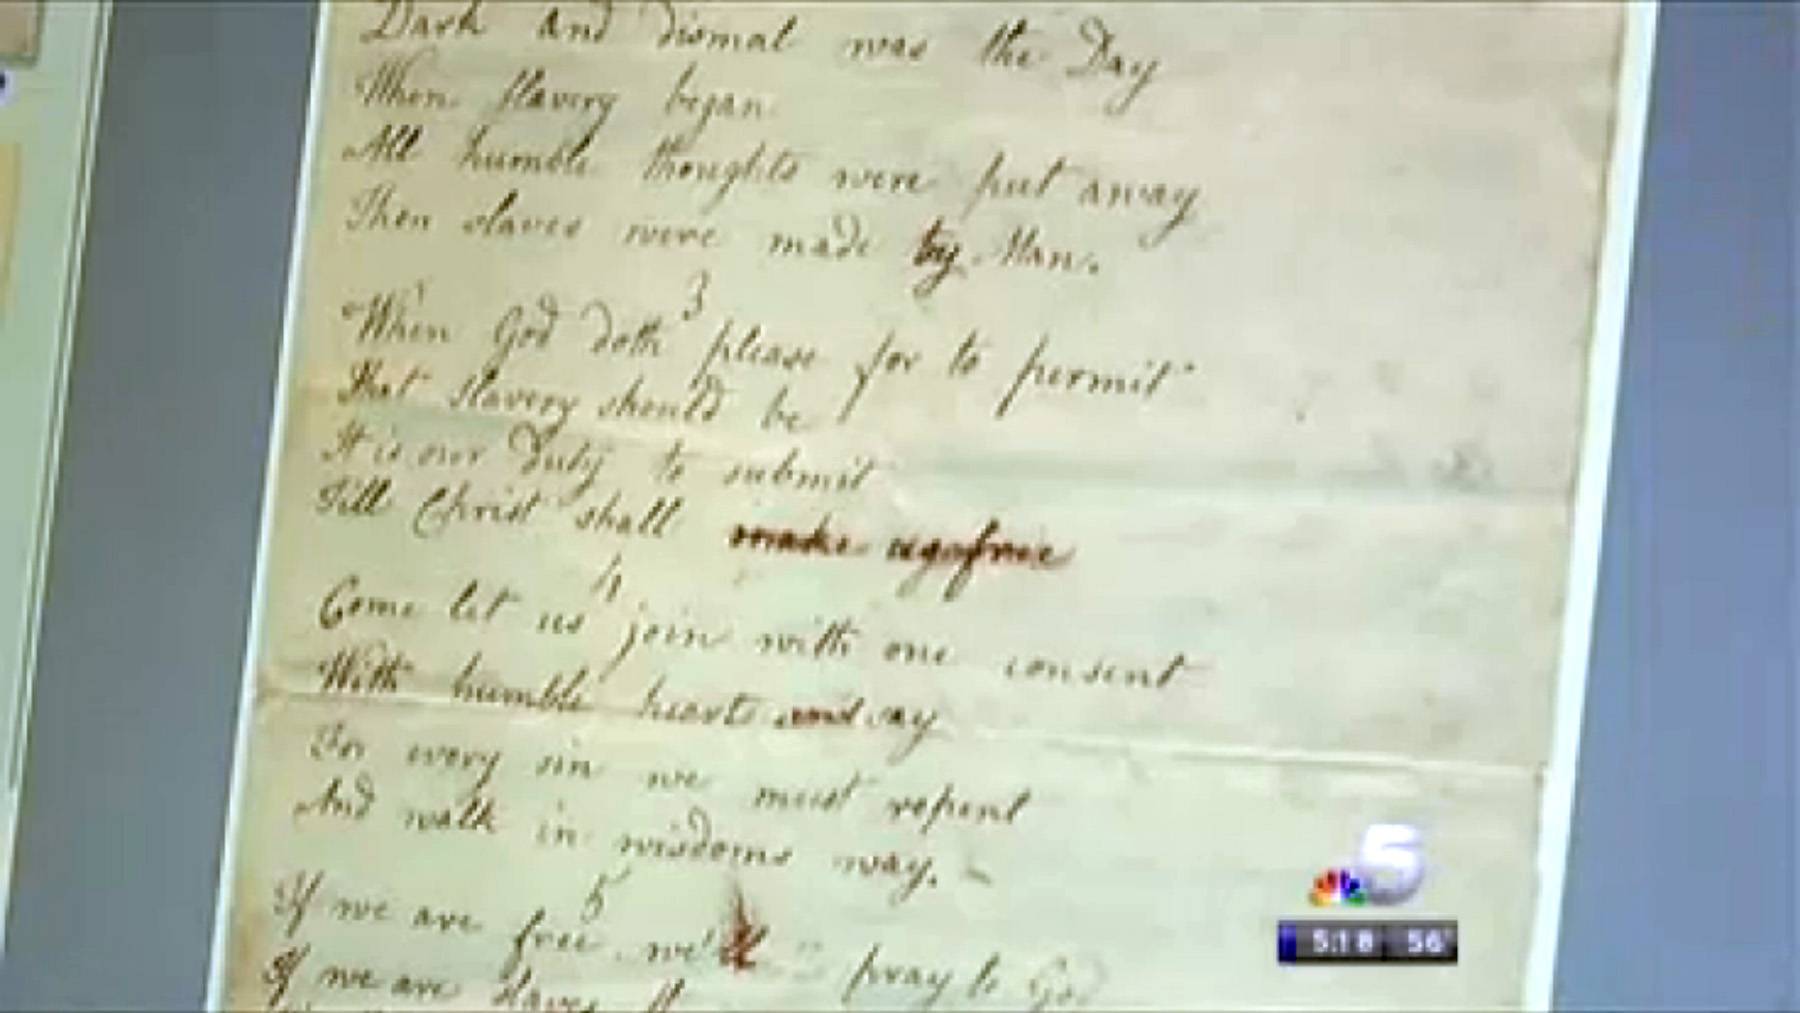 Dark and dismal was the Day
When slavery began
All humble thoughts were put away
Then slaves were made by Man.
3
When God doth please for to permit
That slavery should be
It is our Duty to submit
Till Christ shall make us free
4
Come let us join with one consent
With humble hearts and say
For every sin we must repent
And walk in wisdoms way.
5
If we are free we'll pray to God
If we are slaves
5
5:18 56°